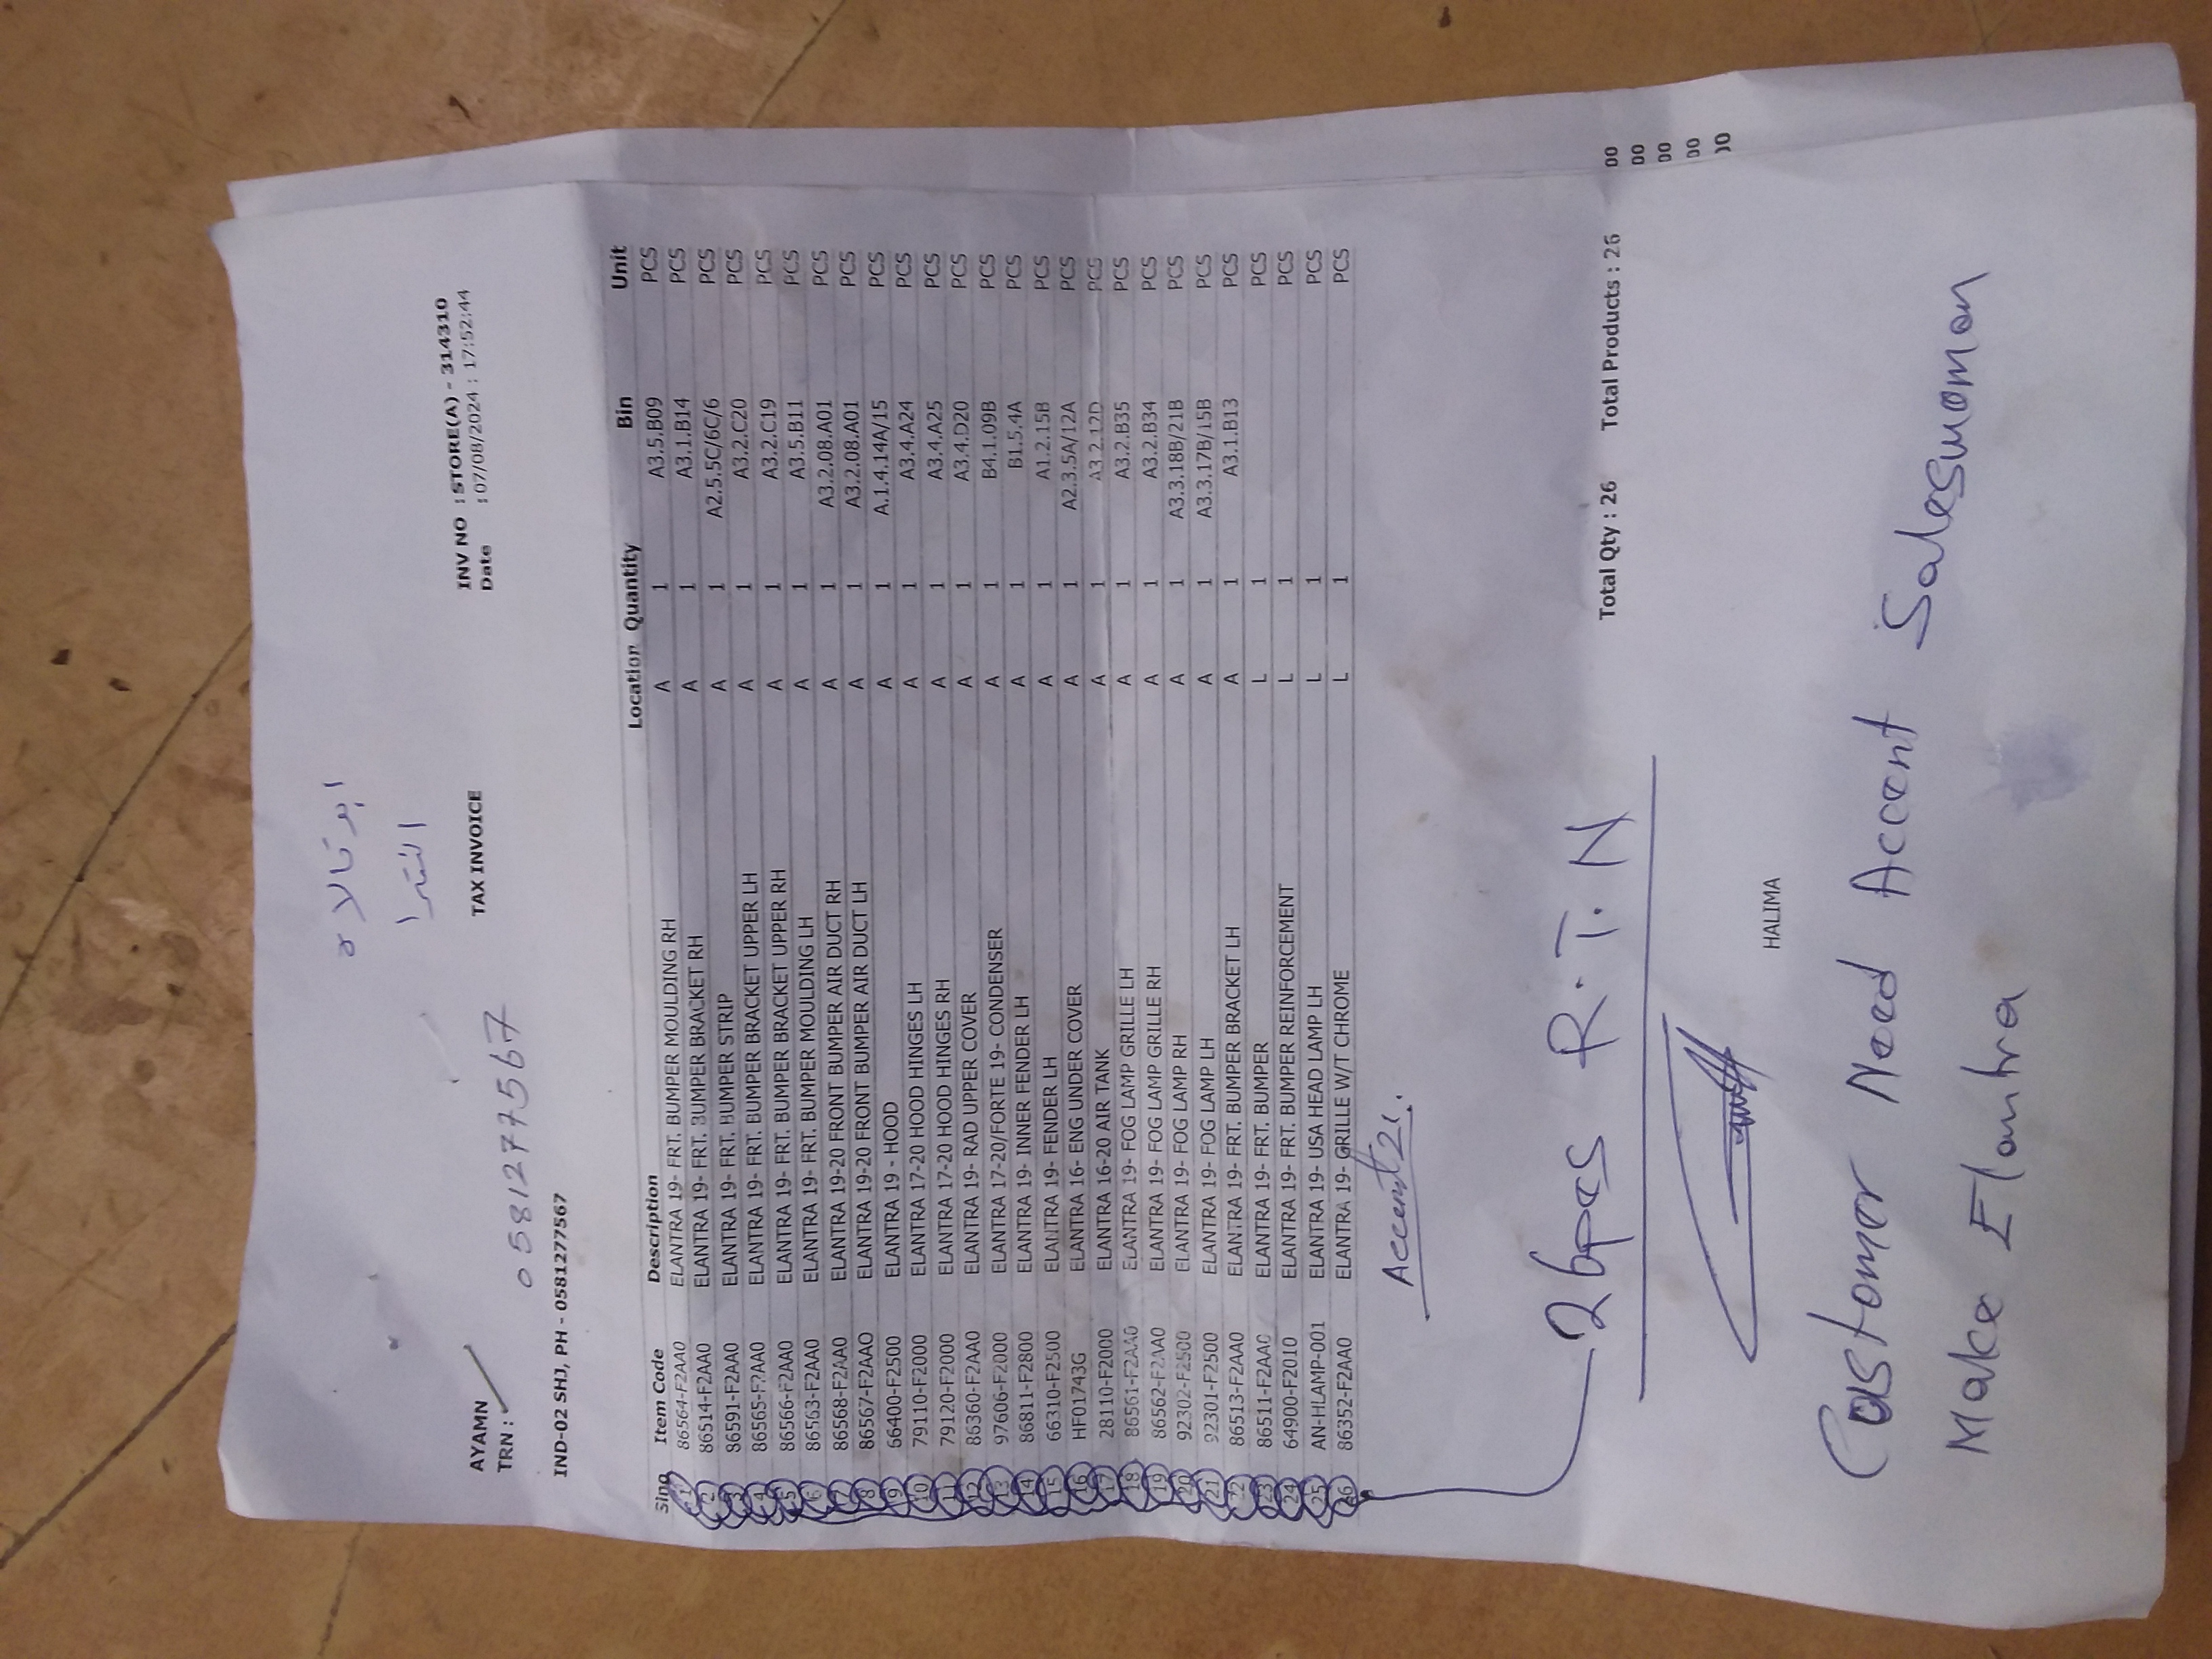 ابو تالا ة
النترا
AYAMN
TRN :
TAX INVOICE
INV NO : STORE(A) - 314310
Date : 07/08/2024 : 17:52:44
0581277567
IND-02 SHJ, PH - 0581277567
Slno Item Code Description Location Quantity Bin Unit
1 86564-F2AA0 ELANTRA 19- FRT. BUMPER MOULDING RH A 1 A3.5.B09 PCS
2 86514-F2AA0 ELANTRA 19- FRT. BUMPER BRACKET RH A 1 A3.1.B14 PCS
3 86591-F2AA0 ELANTRA 19- FRT. BUMPER STRIP A 1 A2.5.5C/6C/6 PCS
4 86565-F2AA0 ELANTRA 19- FRT. BUMPER BRACKET UPPER LH A 1 A3.2.C20 PCS
5 86566-F2AA0 ELANTRA 19- FRT. BUMPER BRACKET UPPER RH A 1 A3.2.C19 PCS
6 86563-F2AA0 ELANTRA 19- FRT. BUMPER MOULDING LH A 1 A3.5.B11 PCS
7 86568-F2AA0 ELANTRA 19-20 FRONT BUMPER AIR DUCT RH A 1 A3.2.08.A01 PCS
8 86567-F2AAO ELANTRA 19-20 FRONT BUMPER AIR DUCT LH A 1 A3.2.08.A01 PCS
9 66400-F2500 ELANTRA 19 - HOOD A 1 A.1.4.14A/15 PCS
10 79110-F2000 ELANTRA 17-20 HOOD HINGES LH A 1 A3.4.A24 PCS
11 79120-F2000 ELANTRA 17-20 HOOD HINGES RH A 1 A3.4.A25 PCS
12 86360-F2AA0 ELANTRA 19- RAD UPPER COVER A 1 A3.4.D20 PCS
13 97606-F2000 ELANTRA 17-20/FORTE 19- CONDENSER A 1 B4.1.09B PCS
14 86811-F2800 ELANTRA 19- INNER FENDER LH A 1 B1.5.4A PCS
15 66310-F2500 ELANTRA 19- FENDER LH A 1 A1.2.15B PCS
16 HF01743G ELANTRA 16- ENG UNDER COVER A 1 A2.3.5A/12A PCS
17 28110-F2000 ELANTRA 16-20 AIR TANK A 1 A3.2.12D PCS
18 86561-F2AA0 ELANTRA 19- FOG LAMP GRILLE LH A 1 A3.2.B35 PCS
19 86562-F2AA0 ELANTRA 19- FOG LAMP GRILLE RH A 1 A3.2.B34 PCS
20 92302-F2500 ELANTRA 19- FOG LAMP RH A 1 A3.3.18B/21B PCS
21 92301-F2500 ELANTRA 19- FOG LAMP LH A 1 A3.3.17B/15B PCS
22 86513-F2AA0 ELANTRA 19- FRT. BUMPER BRACKET LH A 1 A3.1.B13 PCS
23 86511-F2AA0 ELANTRA 19- FRT. BUMPER L 1 PCS
24 64900-F2010 ELANTRA 19- FRT. BUMPER REINFORCEMENT L 1 PCS
25 AN-HLAMP-001 ELANTRA 19- USA HEAD LAMP LH L 1 PCS
26 86352-F2AA0 ELANTRA 19- GRILLE W/T CHROME L 1 PCS
Accent 21.
26pcs R.T.N
Total Qty : 26 Total Products : 26
00
00
00
00
00
HALIMA
Castomer Need Accent Salesmomon
Make Elantra